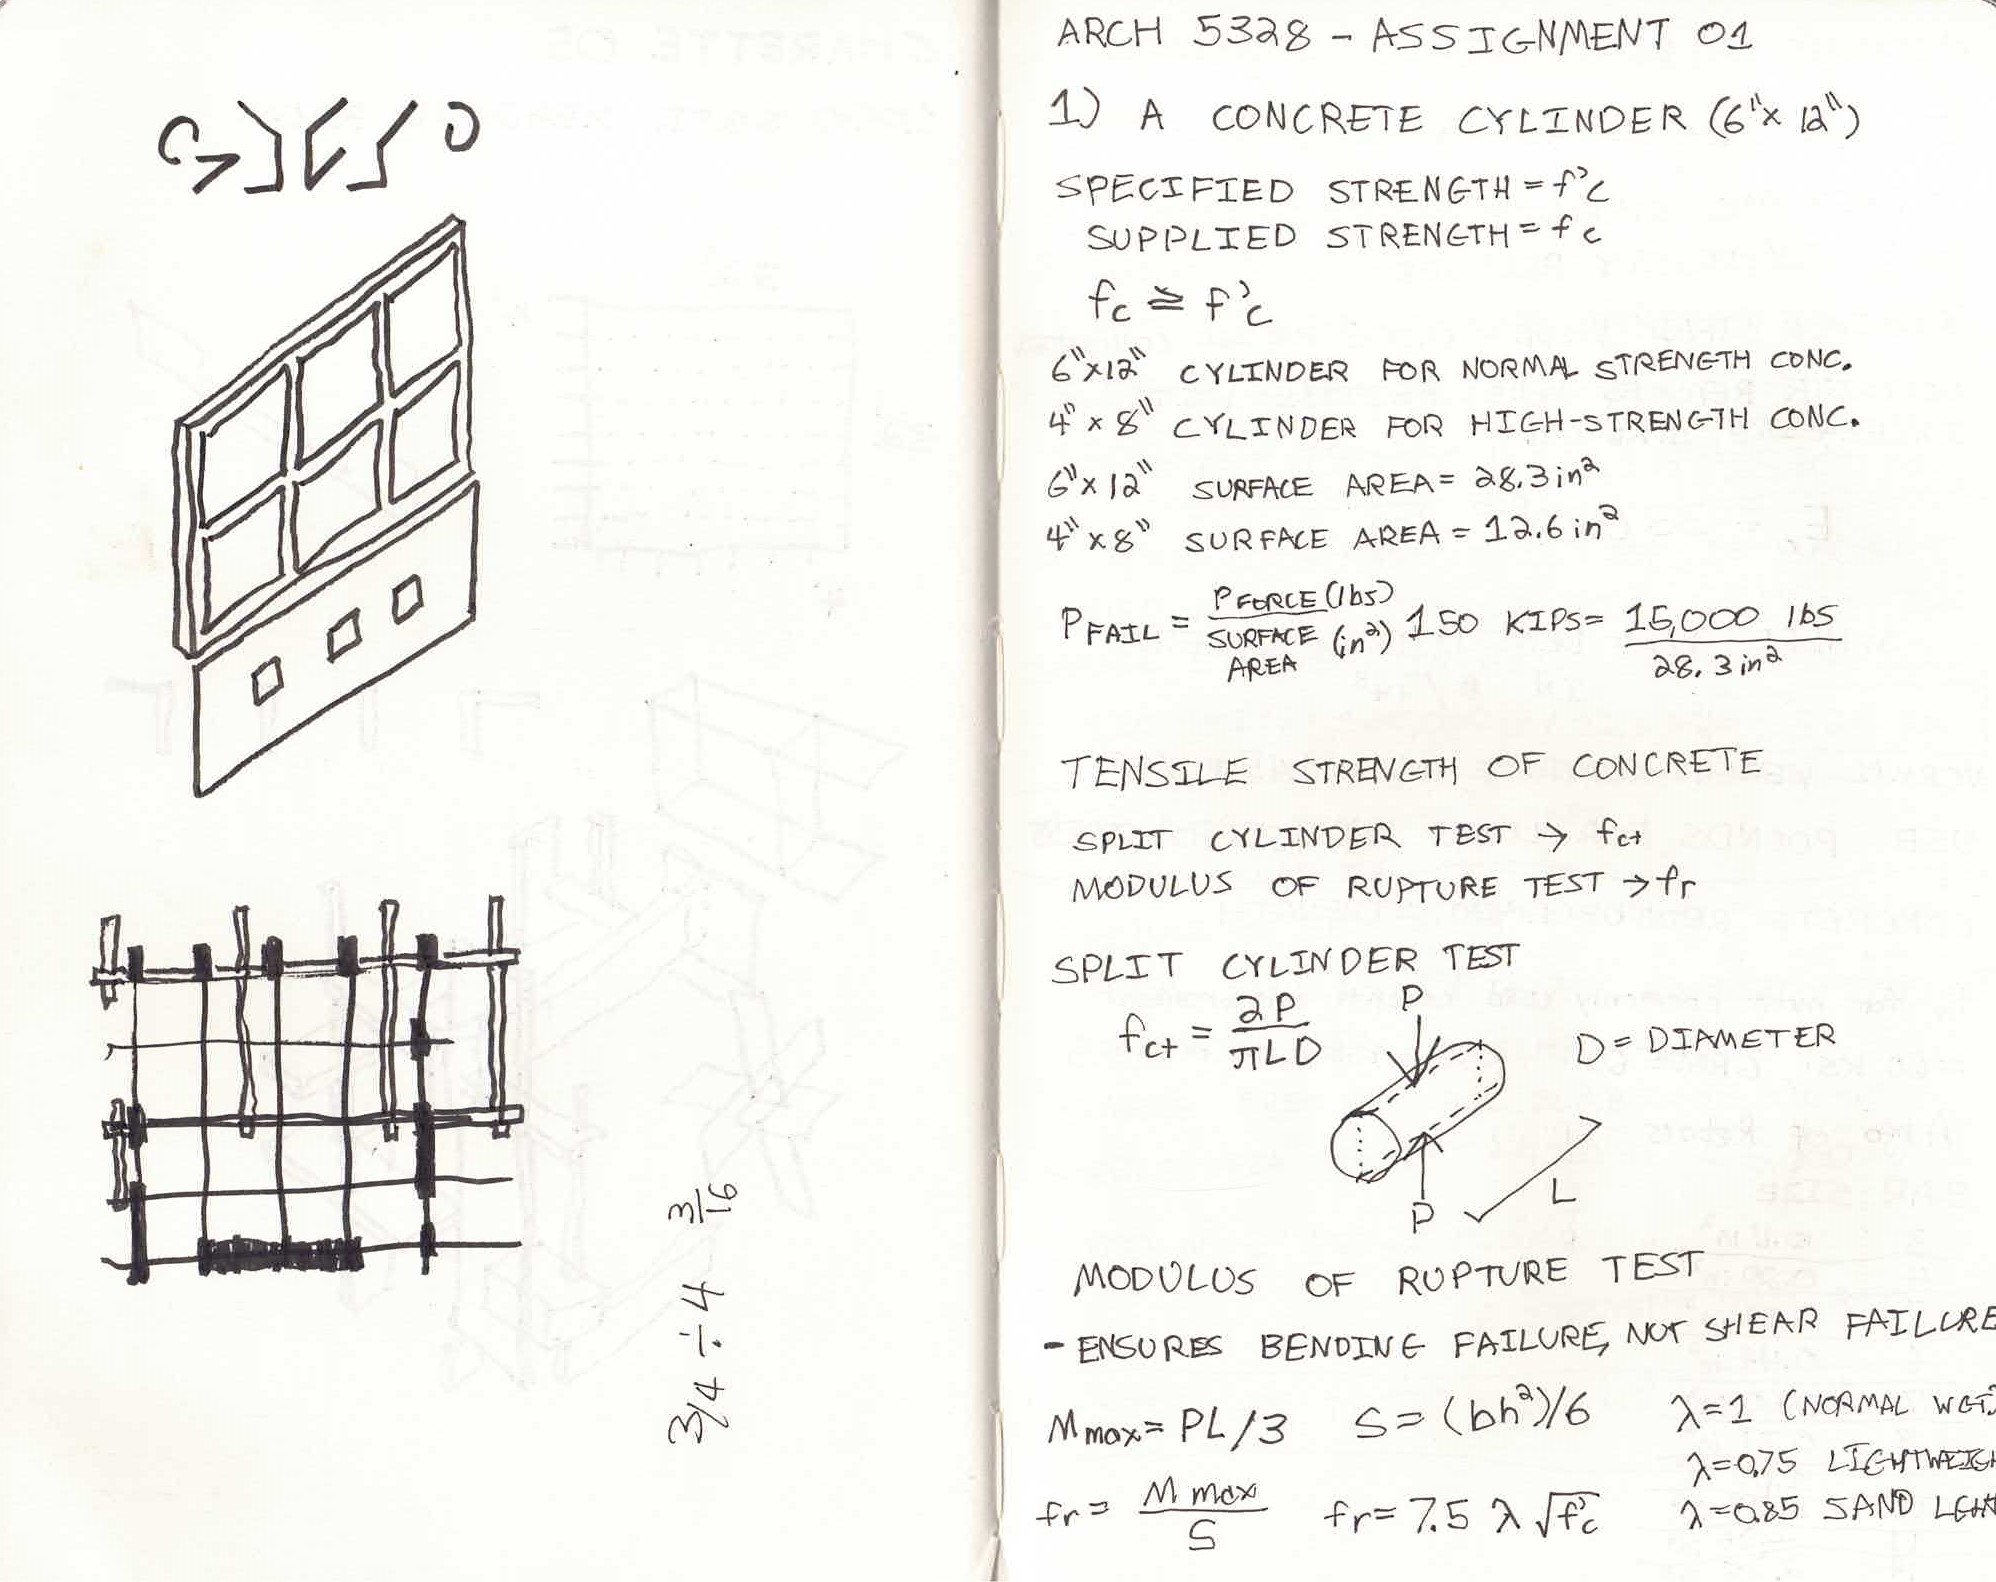 3/4 ÷ 4 3/16
ARCH 5328 - ASSIGNMENT 01
1) A CONCRETE CYLINDER (6"x 12")
SPECIFIED STRENGTH = f'c
SUPPLIED STRENGTH = fc
fc ≅ f'c
6"x12" CYLINDER FOR NORMAL STRENGTH CONC.
4" x 8" CYLINDER FOR HIGH-STRENGTH CONC.
6" x 12" SURFACE AREA = 28.3 in²
4" x 8" SURFACE AREA = 12.6 in²
P FAIL = P FORCE (lbs) / SURFACE AREA (in²) 150 KIPS = 15,000 lbs / 28.3 in²
TENSILE STRENGTH OF CONCRETE
SPLIT CYLINDER TEST → fct
MODULUS OF RUPTURE TEST → fr
SPLIT CYLINDER TEST
fct = 2P / πLD
P
D = DIAMETER
L
P
MODULUS OF RUPTURE TEST
- ENSURES BENDING FAILURE, NOT SHEAR FAILURE
M max = PL/3 S = (bh²)/6 λ=1 (NORMAL WGT.)
λ=0.75 LIGHTWEIGH
fr = M max / S fr = 7.5 λ √f'c λ=0.85 SAND